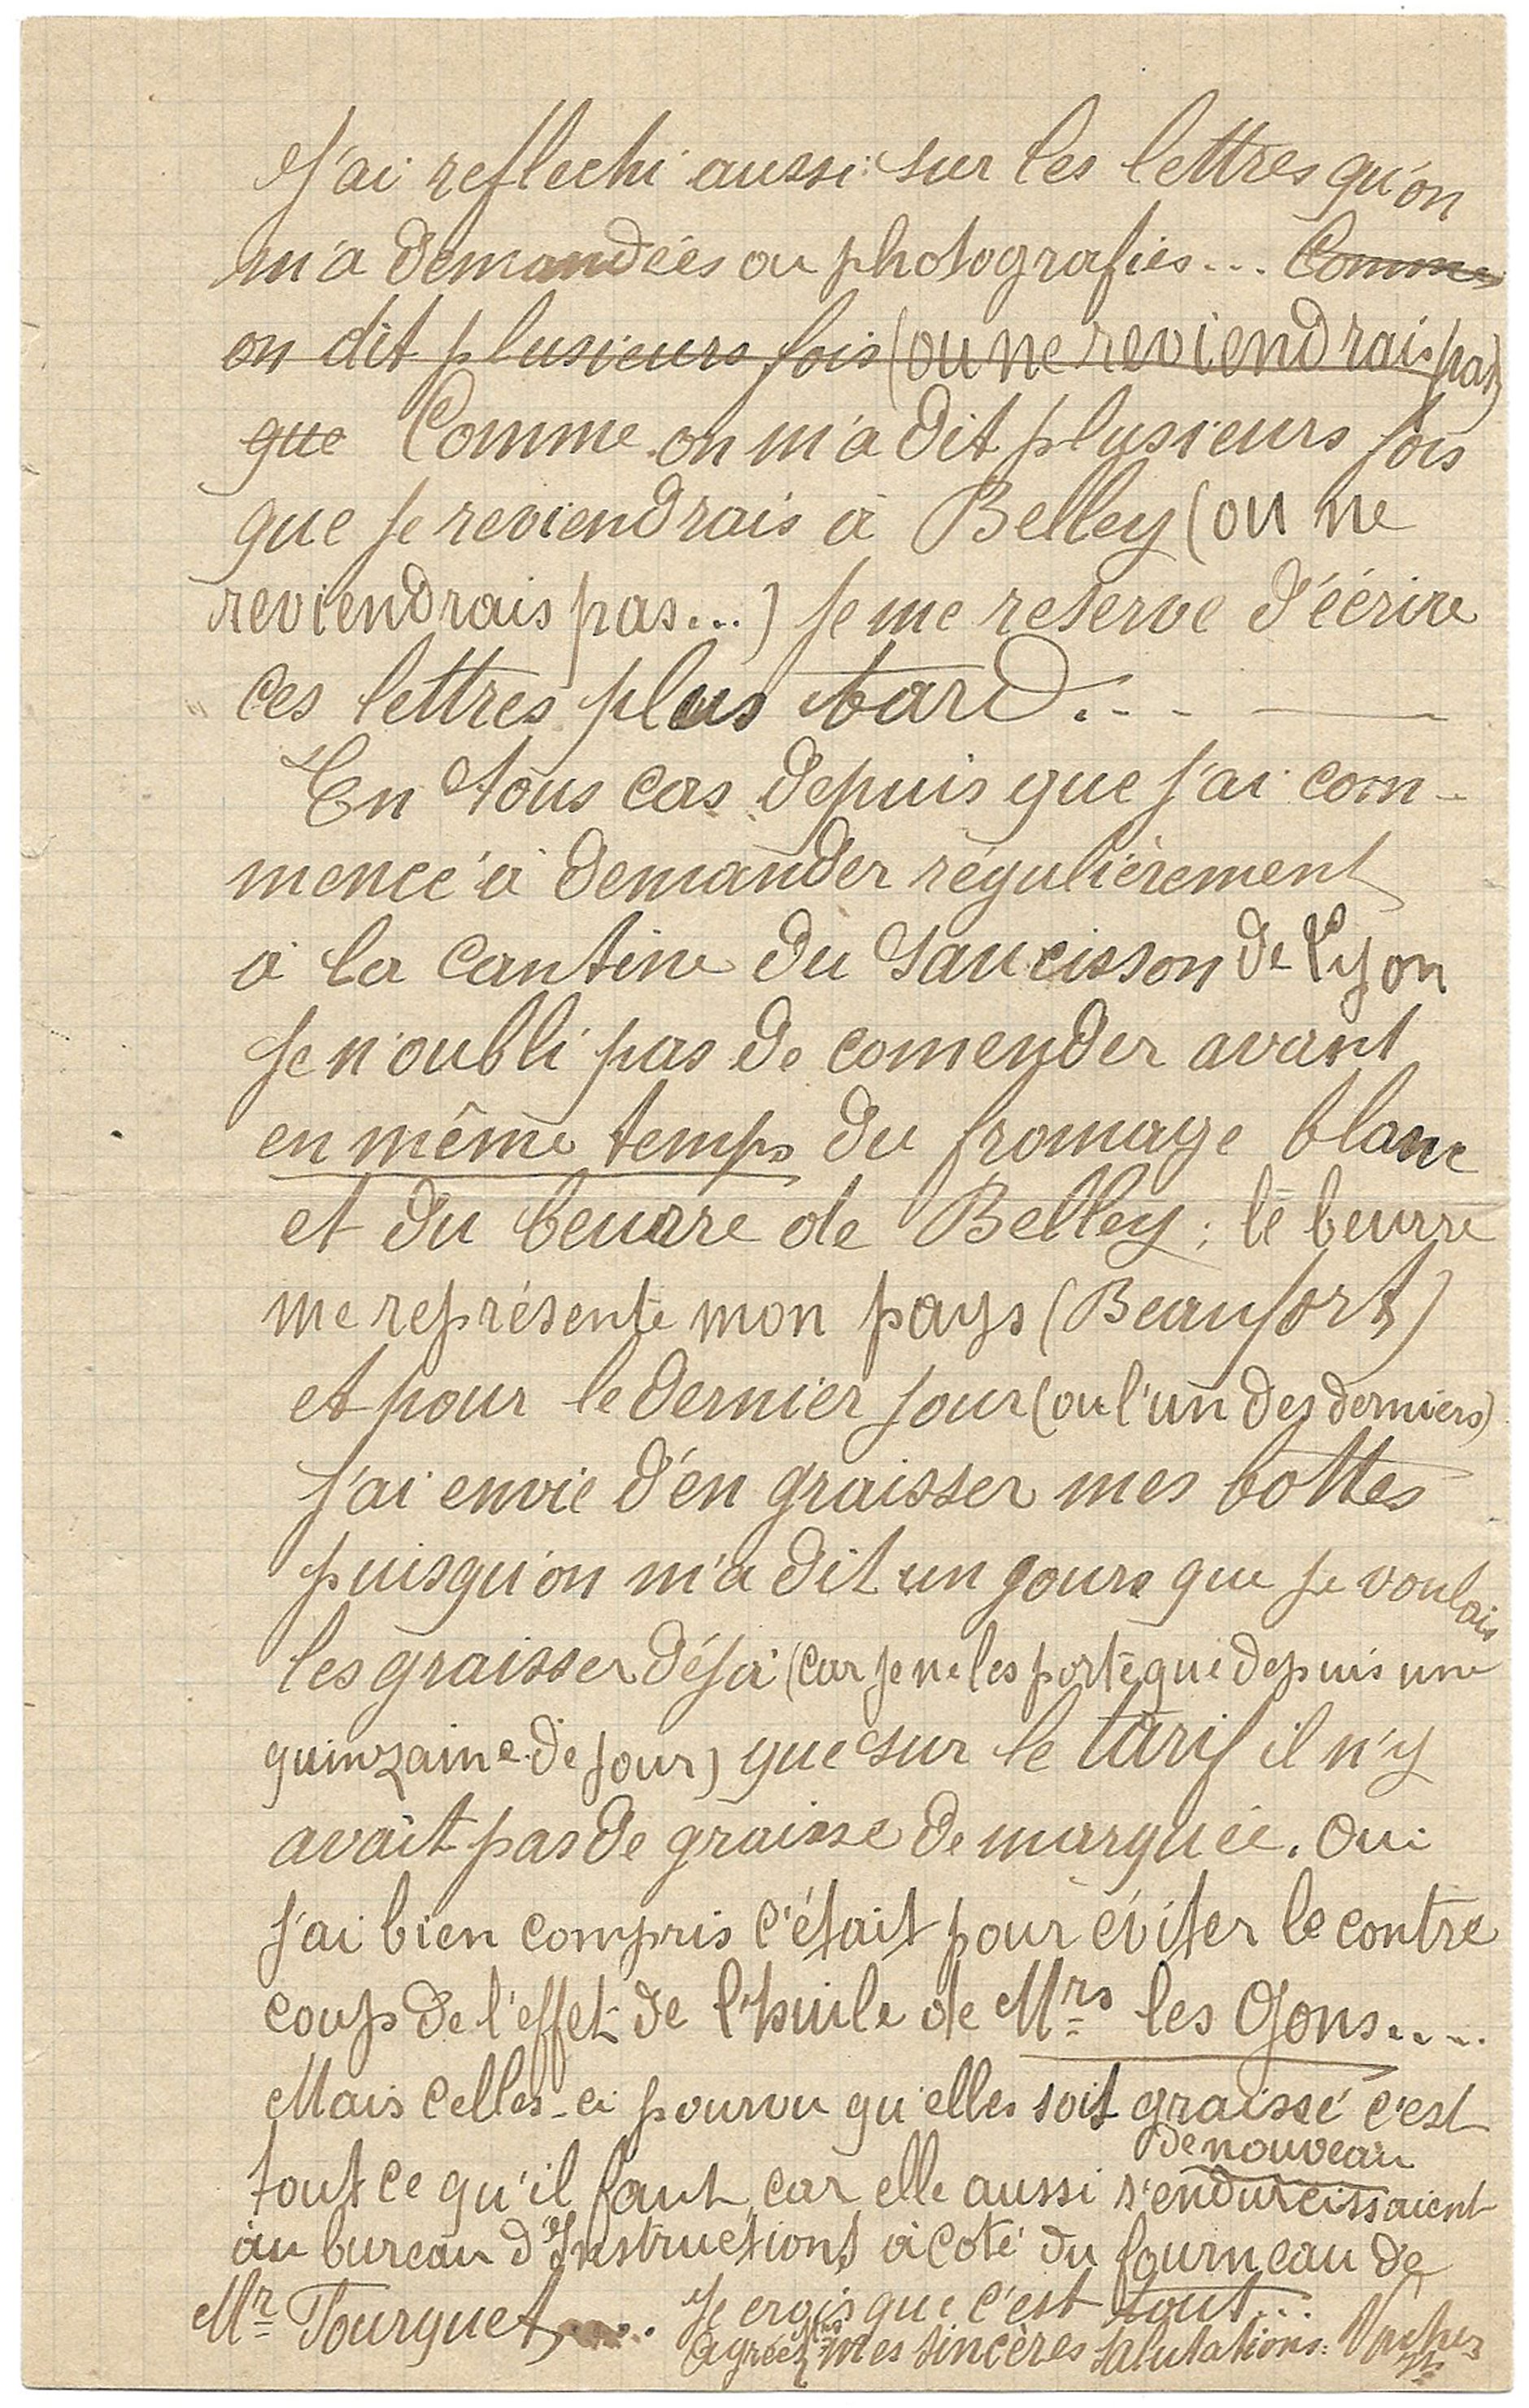 J'ai reflechi aussi sur les lettres qu'on
m'a demandées ou photografies... Comme
on dit plusieurs fois (ou ne reviendrais pas)
que Comme on m'a dit plusieurs fois
que je reviendrais à Belley (ou ne
reviendrais pas...) je me reserve d'éérire
ces lettres plus tard... —
En tous cas depuis que j'ai com-
mencé à demander régulièrement
à la cantine du saucisson de Lyon
je n'oubli pas de comender avant
en même temps du fromage blanc
et du beurre de Belley; le beurre
me représente mon pays (Beaufort)
et pour le dernier jour (ou l'un des derniers)
j'ai envie d'en graisser mes bottes
puisqu'on m'a dit un jours que je voulais
les graisser déjà (car je ne les porte que depuis une
quinzaine de jour) que sur le tarif il n'y
avait pas de graisse de marquée. Oui
j'ai bien compris c'était pour éviter le contre
coup de l'effet de l'huile de Mrs les Gons....
Mais celles-ci pourvu qu'elles soit graissé c'est
de nouveau
tout ce qu'il faut car elle aussi s'endurcissaient
au bureau d'Instructions à coté du fourneau de
Mr Tourquet.... Je crois que c'est tout...
agréez mes sincères salutations. Vacher